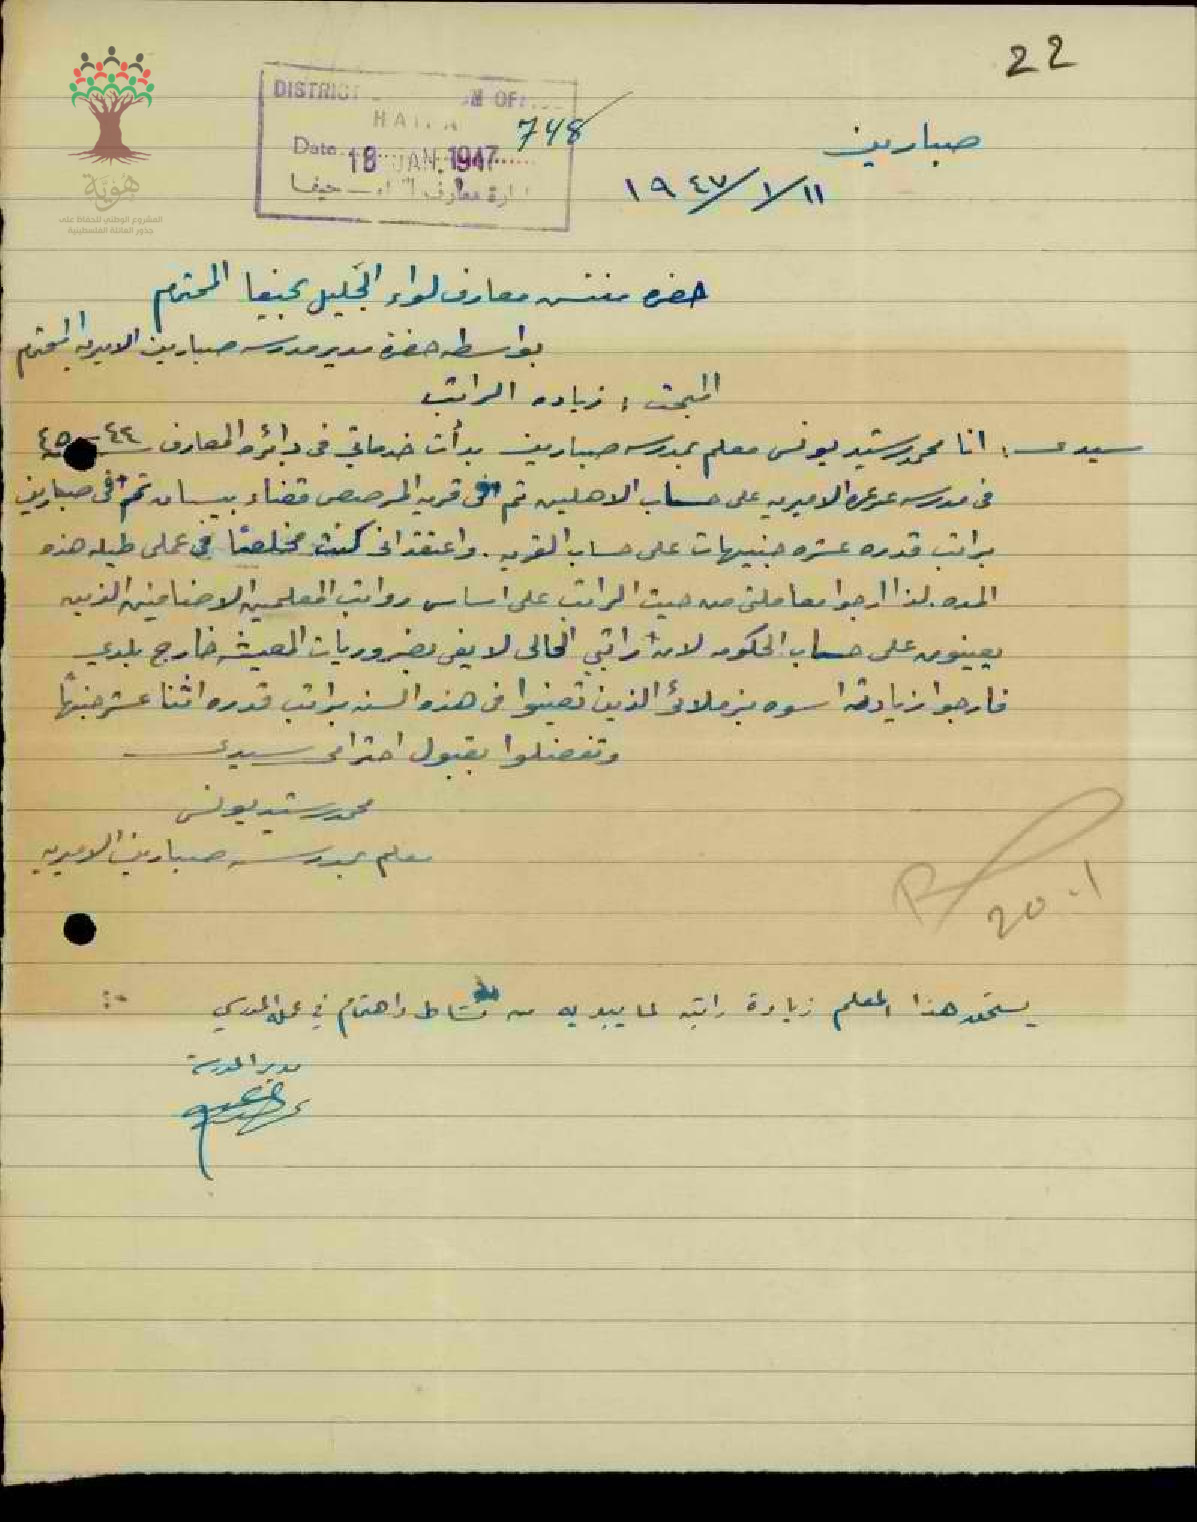 22
DISTRICT OF
HAIFA
748
Date 18 JAN. 1947
معارف حيفا
هوية
المشروع الوطني للحفاظ على
جذور العائلة الفلسطينية
صبارين
١١/١/١٩٤٧
حضرة مفتش معارف لواء الجليل بحيفا المحترم
بواسطه حضرة مدير مدرسه صبارين الاميريه المحترم
المبحث : زياده الراتب
سيدي : انا محمد رشيد يونس معلم بمدرسه صبارين بدأت خدماتي في دائره المعارف ٤٤ - ٤٥
في مدرسه عرعره الاميريه على حساب الاهلين ثم في قريه المرصص قضاء بيسان ثم في صبارين
براتب قدره عشره جنيهات على حساب القريه . واعتقد اني كنت مخلصًا في عملي طيله هذه
المده . لذا ارجوا معاملتي من حيث الراتب على اساس رواتب المعلمين الاضافيين الذين
يعينون على حساب الحكومه لان راتبي الحالي لا يفي بضروريات المعيشه خارج بلدي
فارجوا زيادته اسوه بزملائي الذين تعينوا في هذه السنه براتب قدره اثنا عشر جنيهًا
وتفضلوا بقبول احترامي سيدي
محمد رشيد يونس
معلم بمدرسه صبارين الاميريه
20-1
يستحق هذا المعلم زيادة راتبه لما يبديه من نشاط واهتمام في عمله المدرسي
مدير المدرسة